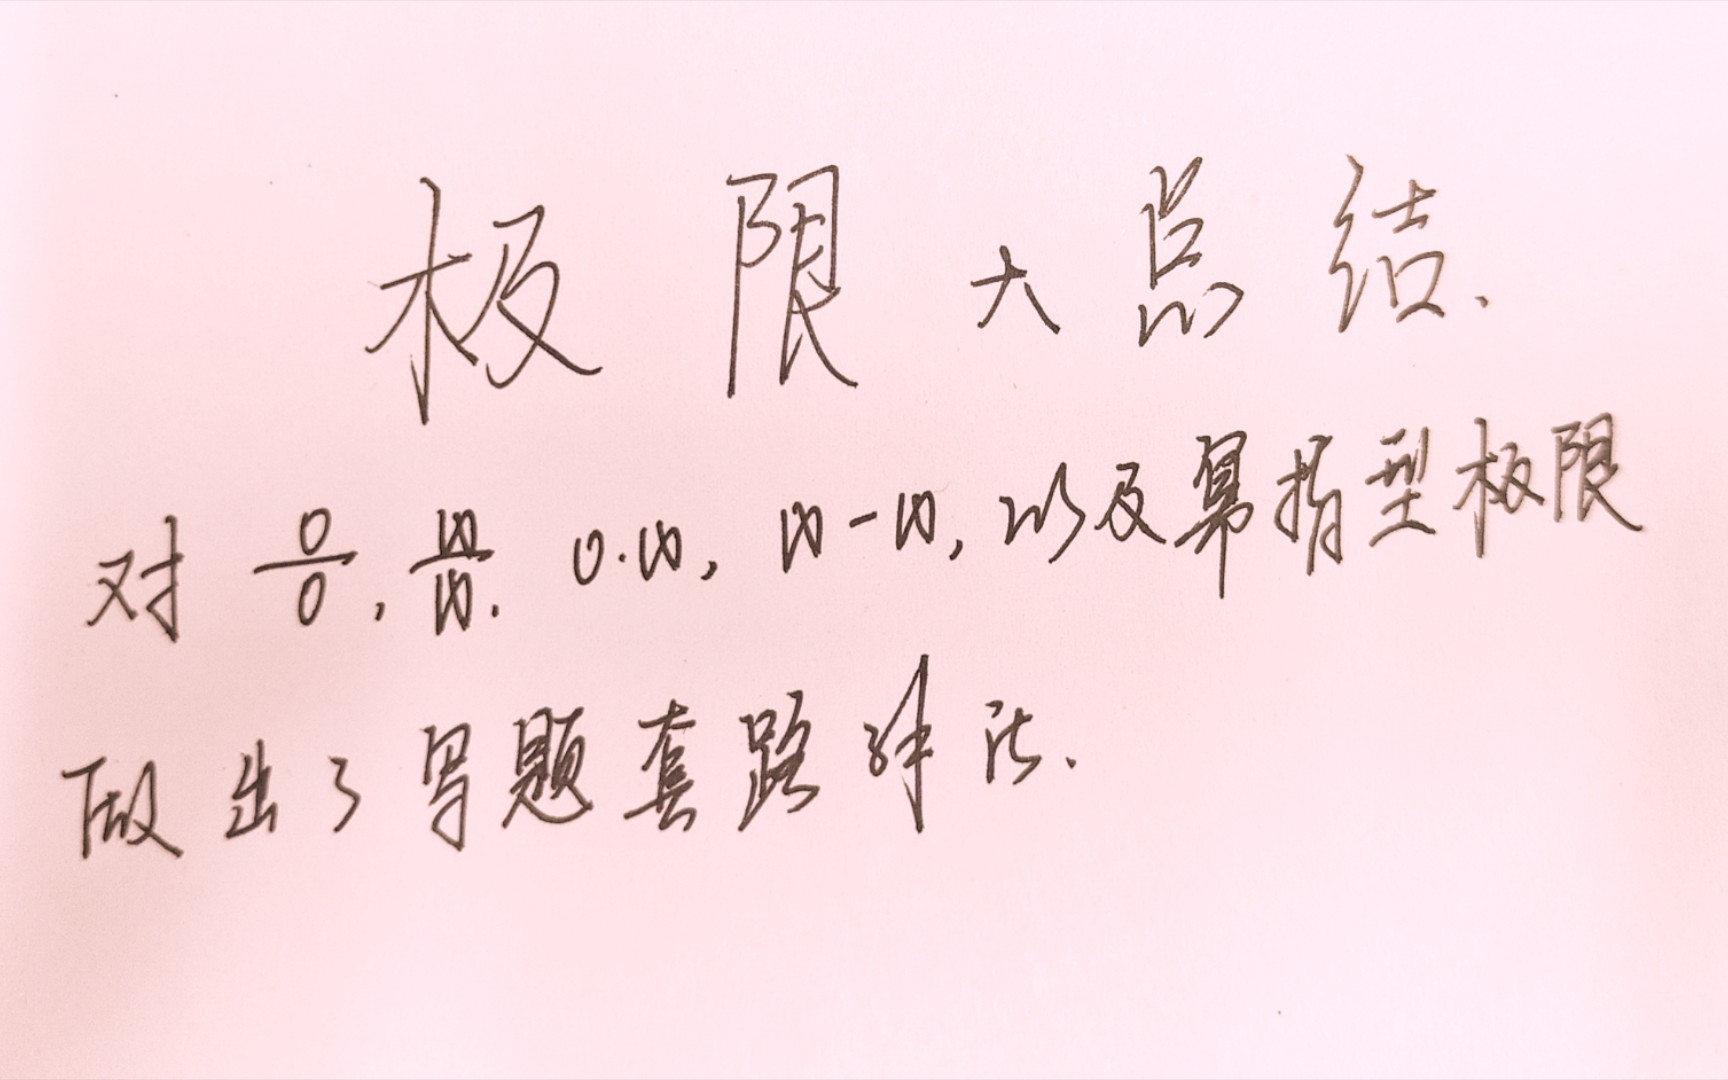 极限大总结.
对 0/0, ∞/∞. 0·∞, ∞-∞, 以及幂指型极限
做出了写题套路